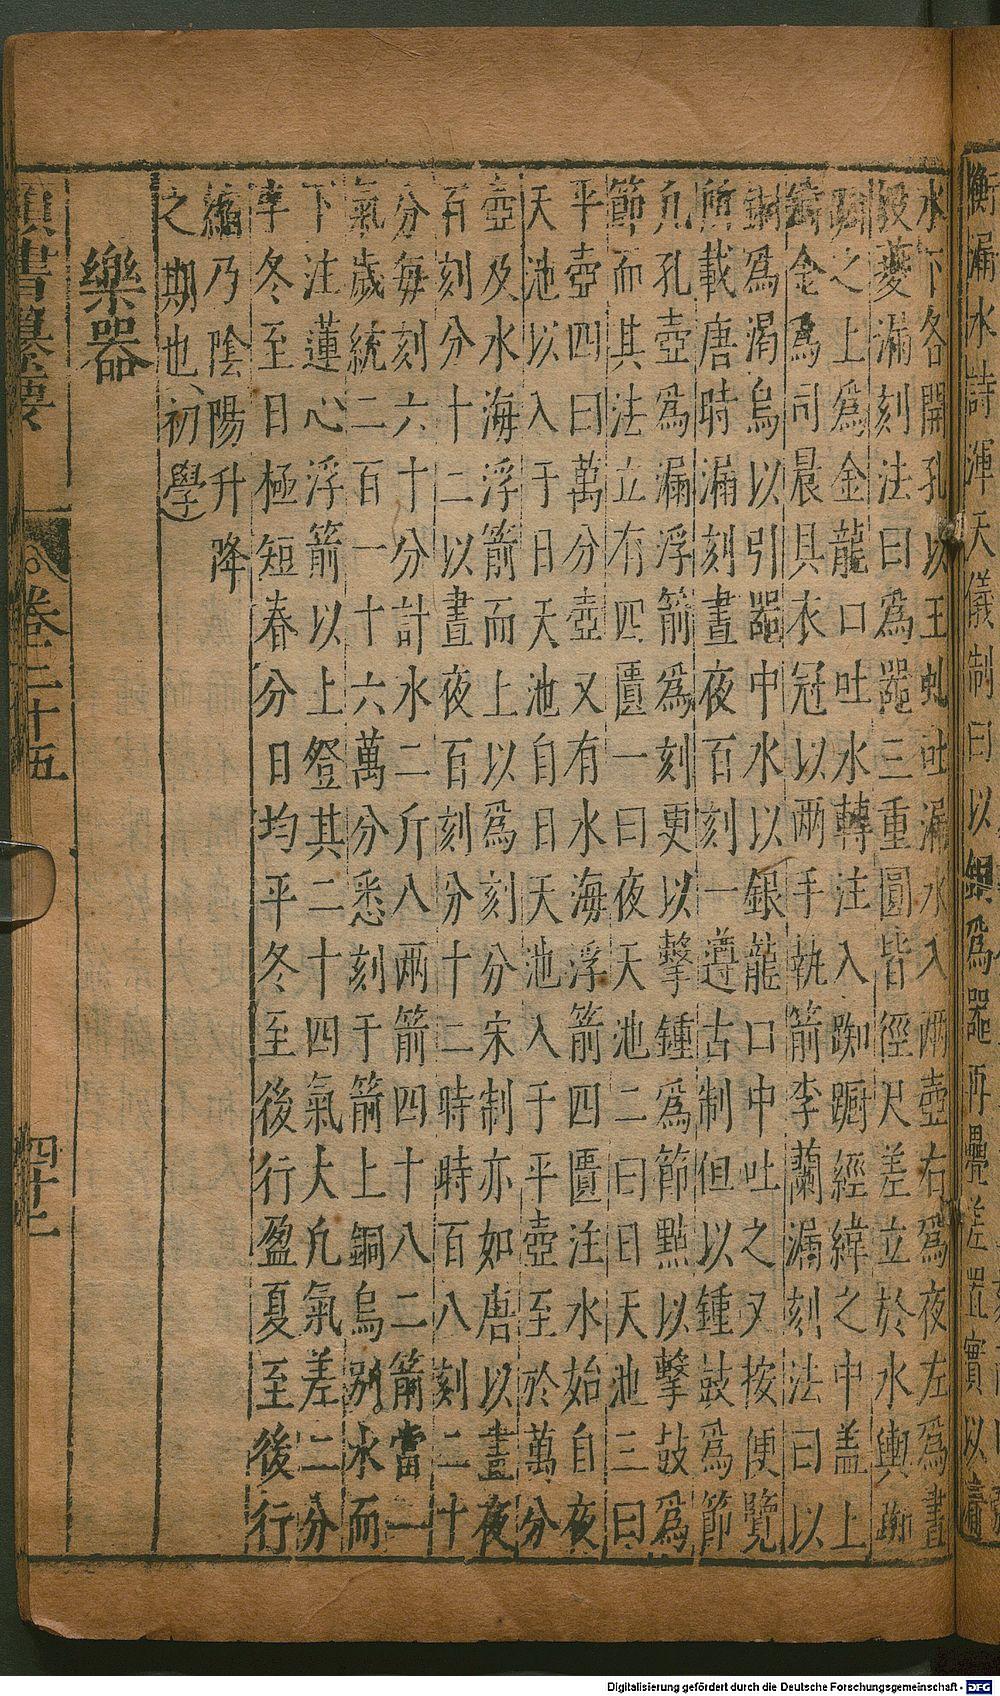 衡漏水詩渾天儀制曰以銅為器再疊差置實以清
水下各開孔以玉虬吐漏水入兩壺右爲夜左爲晝
殷夔漏刻法曰爲器三重圓皆徑尺差立於水輿踟
蹰之上爲金龍口吐水轉注入踟蹰經緯之中盖上
鑄金爲司晨具衣冠以两手執箭李蘭漏刻法曰以
銅爲渴烏以引器中水以銀龍口中吐之又按便覽
所載唐時漏刻晝夜百刻一遵古制但以鍾鼓爲節
凢孔壺爲漏浮箭爲刻更以擊鍾爲節點以擊鼓爲
節而其法立有四匱一曰夜天池二曰日天池三曰
平壺四曰萬分壺又有水海浮箭四匱注水始自夜
天池以入于日天池自日天池入于平壺至於萬分
壺及水海浮箭而上以爲刻分宋制亦如唐以晝夜
百刻分十二以晝夜百刻分十二時時百八刻二十
分每刻六十分計水二斤八两箭四十八二箭當一
氣歲統二百一十六萬分悉刻于箭上銅烏別水而
下注蓮心浮箭以上登其二十四氣大凢氣差二分
半冬至日極短春分日均平冬至後行盈夏至後行
縮乃陰陽升降
之期也、初學
樂器
類書纂要 卷二十五 四十二
Digitalisierung gefördert durch die Deutsche Forschungsgemeinschaft - DFG